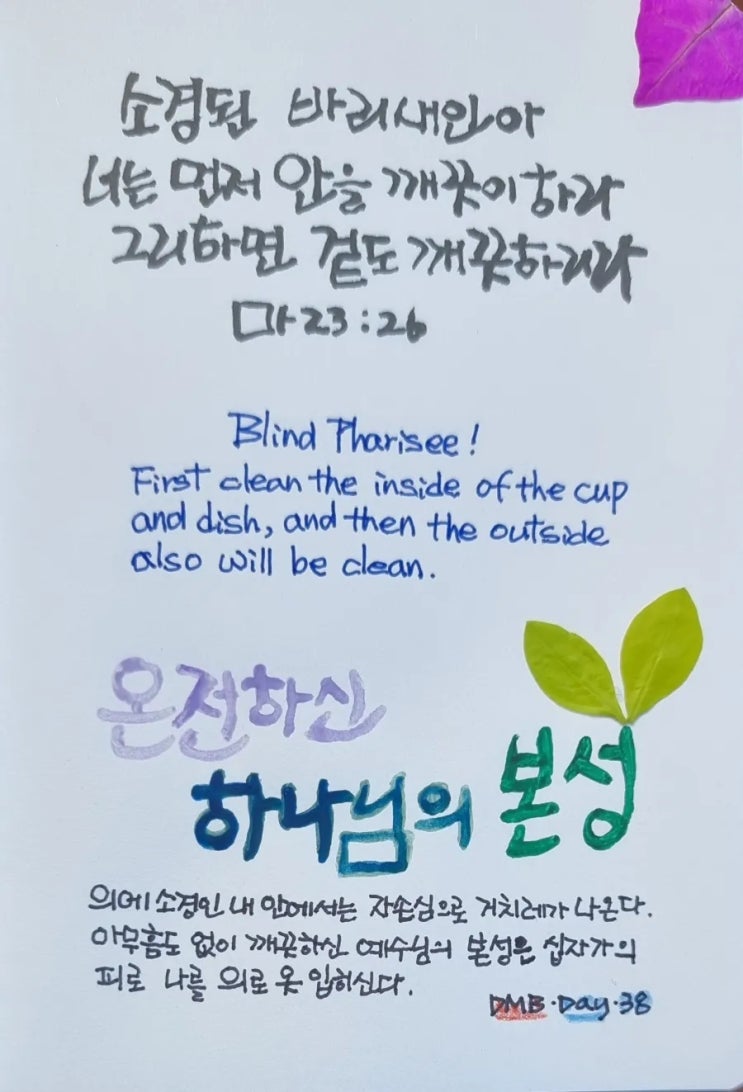 소경된 바리새인아
너는 먼저 안을 깨끗이하라
그리하면 겉도 깨끗하리라
마23:26
Blind Pharisee!
First clean the inside of the cup
and dish, and then the outside
also will be clean.
온전하신
하나님의 본성
의에 소경인 내 안에서는 자존심으로 겉치레가 나온다.
아무흠도 없이 깨끗하신 예수님의 본성은 십자가의
피로 나를 의로 옷 입히신다.
DMB·Day·38